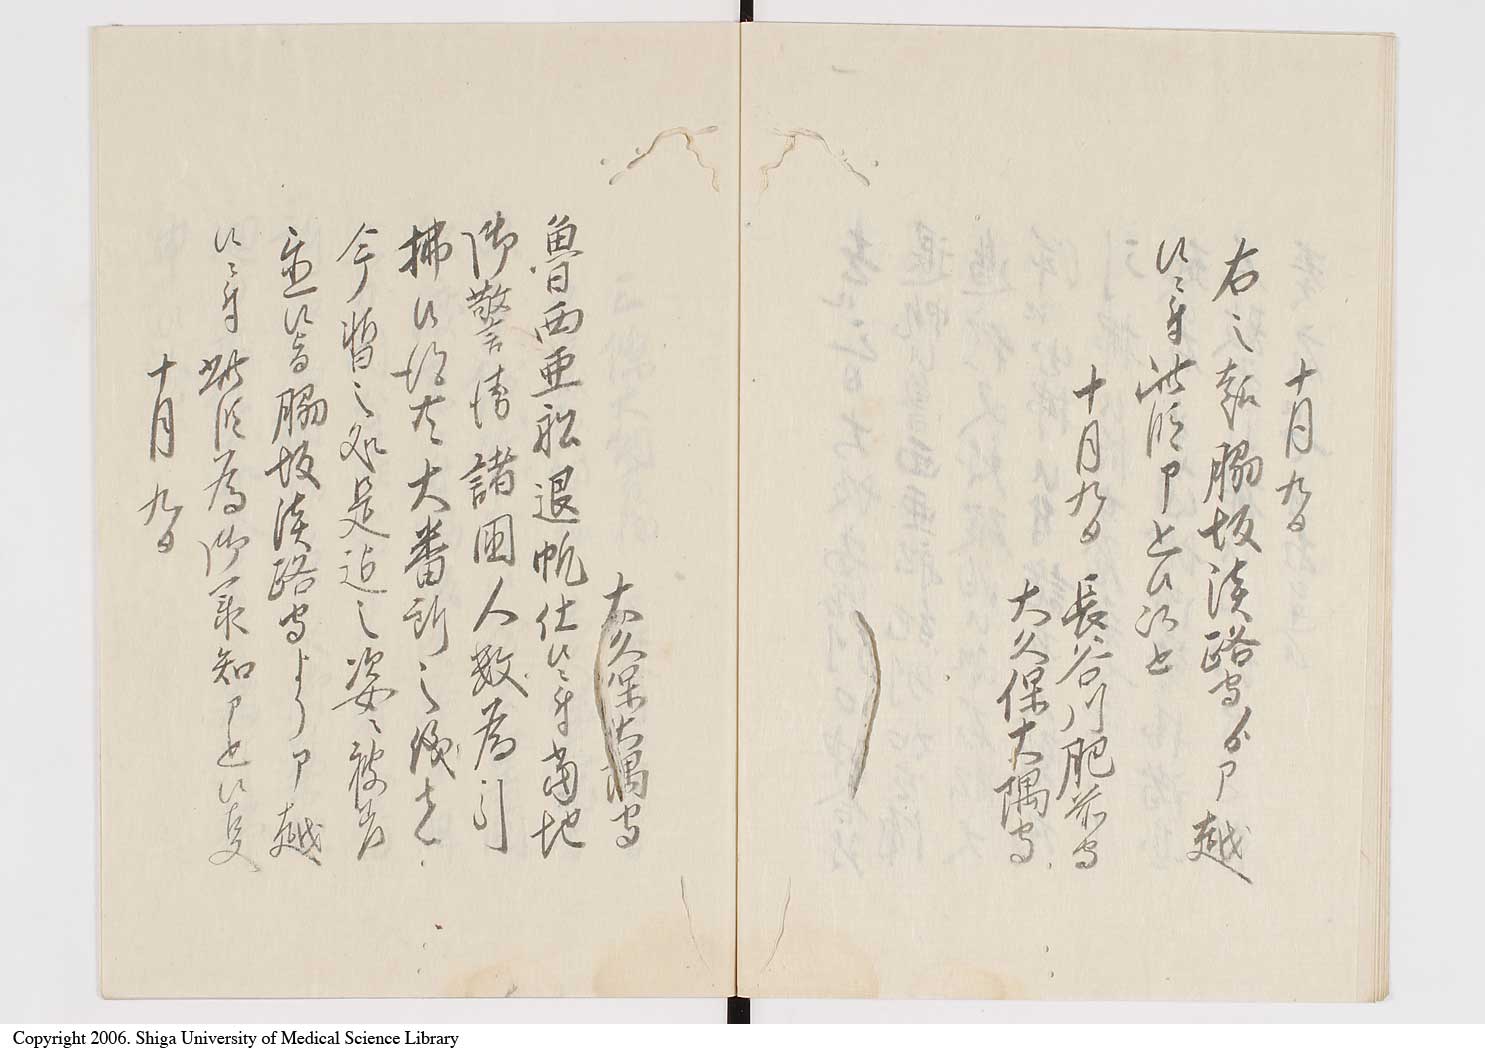 十月九日
右之趣脇坂淡路守ゟ申越
候ニ付此段申上候以上
十月九日 長谷川肥前守
大久保大隅守
大久保大隅守
魯西亜船退帆仕候ニ付当地
御警衛諸国人数為引
払候得共大番所之儀者
今暫之処是迄之姿ニ被差
置候旨脇坂淡路守より申越
候ニ付此段為御承知申上候
十月九日
Copyright 2006. Shiga University of Medical Science Library